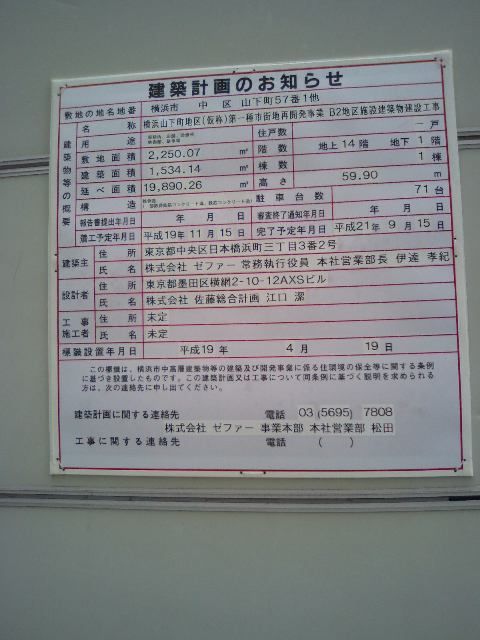 建築計画のお知らせ
敷地の地名地番 横浜市 中 区 山下町57番1他
建築物等の概要
名称 横浜山下町地区(仮称)第一種市街地再開発事業 B2地区施設建築物建設工事
用途 住戸数 一戸
敷地面積 2,250.07 ㎡ 階数 地上14階 地下1階
建築面積 1,534.14 ㎡ 棟数 1棟
延べ面積 19,890.26 ㎡ 高さ 59.90 m
構造 駐車台数 71台
報告書提出年月日 年 月 日 審査終了通知年月日 年 月 日
着工予定年月日 平成19年11月15日 完了予定年月日 平成21年9月15日
建築主 住所 東京都中央区日本橋浜町三丁目3番2号
氏名 株式会社 ゼファー 常務執行役員 本社営業部長 伊達 孝紀
設計者 住所 東京都墨田区横網2-10-12AXSビル
氏名 株式会社 佐藤総合計画 江口 潔
工事施工者 住所 未定
氏名 未定
標識設置年月日 平成19年 4月 19日
この標識は、横浜市中高層建築物等の建築及び開発事業に係る住環境の保全等に関する条例
に基づき設置したものです。この建築計画又は工事について同条例に基づく説明を求められる
方は、次の連絡先に申し出てください。
建築計画に関する連絡先 電話 03(5695)7808
株式会社 ゼファー 事業本部 本社営業部 松田
工事に関する連絡先 電話 ( )